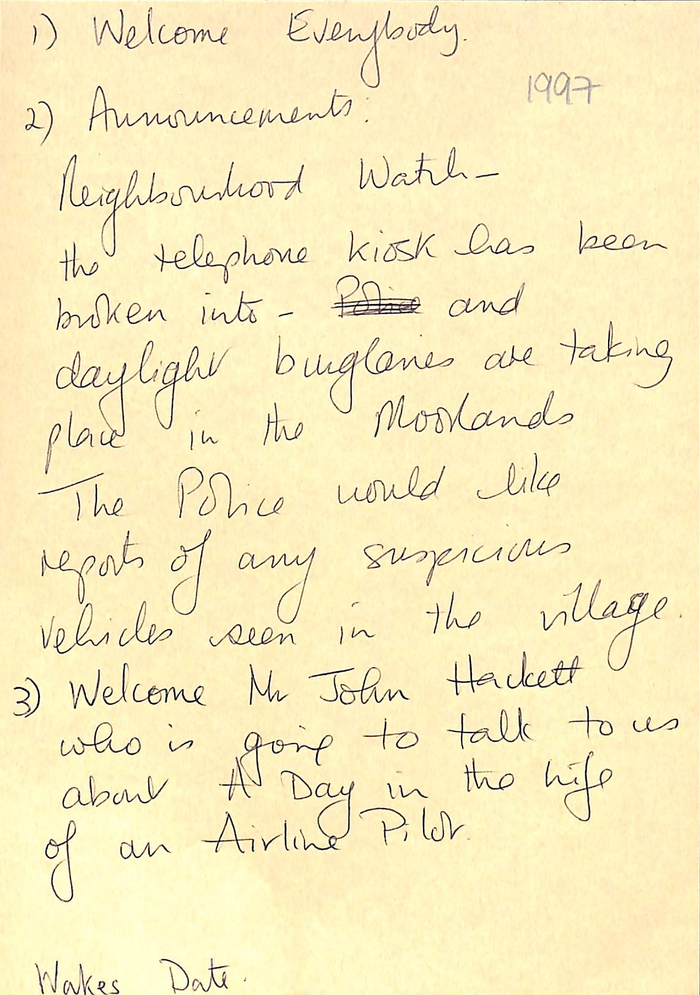 1) Welcome Everybody.
1997
2) Announcements:
Neighbourhood Watch-
the telephone kiosk has been
broken into - Police and
daylight burglaries are taking
place in the Moorlands
The Police would like
reports of any suspicious
vehicles seen in the village.
3) Welcome Mr John Hackett
who is going to talk to us
about A Day in the Life
of an Airline Pilot.
Wakes Date.